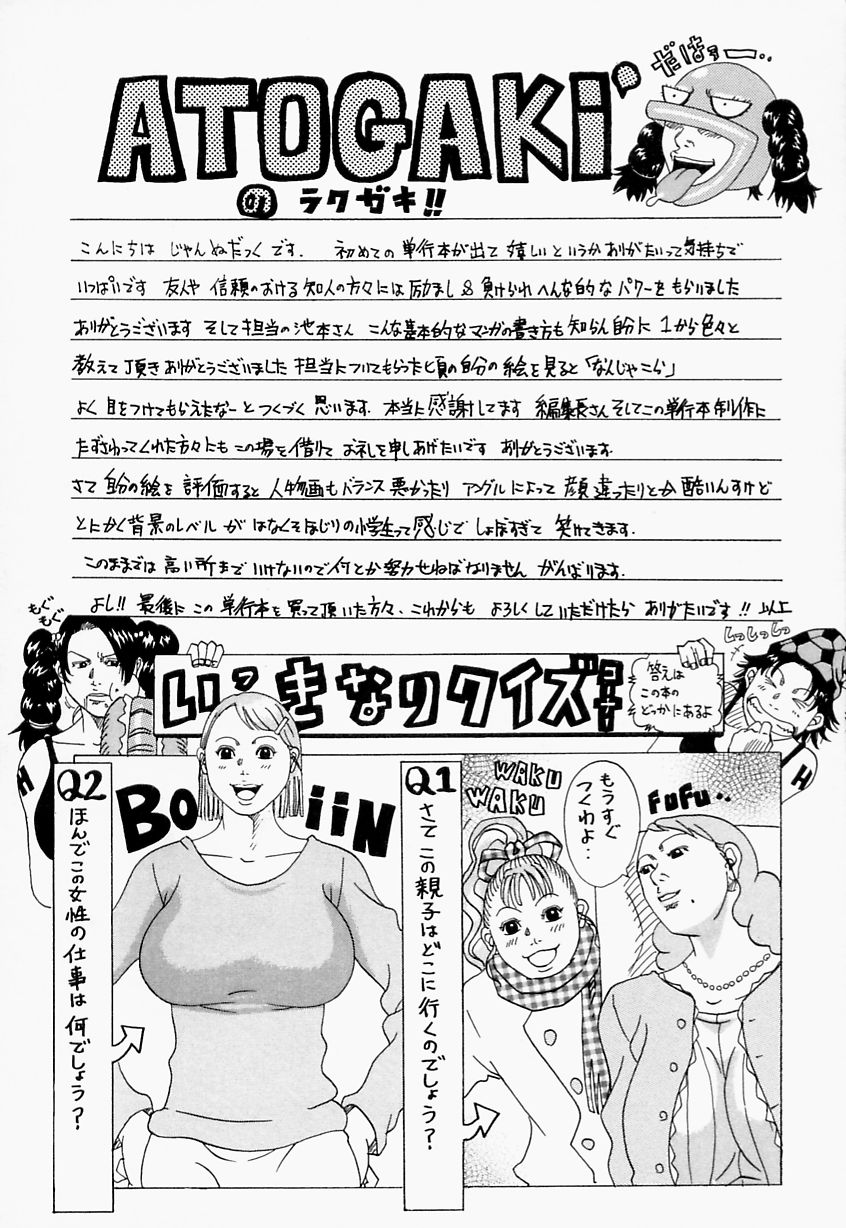 ATOGAKi
だはァー‥
のラクガキ!!
こんにちは じゃんぬだっく です. 初めての 単行本が出て 嬉しい というか ありがたいって気持ちで
いっぱいです 友人や 信頼のおける知人の方々には 励まし & 負けられへんな的な パワーをもらいました
ありがとうございます そして担当の池本さん こんな基本的なマンガの書き方も 知らん自分に 1から色々と
教えて頂きありがとうございました 担当についてもらった頃の自分の絵を見ると「なんじゃこら」
よく 目をつけてもらえたなーと つくづく 思います. 本当に感謝してます 編集長さんそしてこの単行本制作に
たずさわってくれた方々にも この場を借りて お礼を申しあげたいです ありがとうございます.
さて 自分の絵を 評価すると 人物画もバランス悪かたり アングルによって 顔違ったりとか 酷いんすけど
とにかく背景のレベル が はなくそほじりの小学生って感じで しょぼすぎて 笑けてきます.
このままでは 高い所まで いけないので何とか努力せねばなりません がんばります.
よし!! 最後に この 単行本を買って頂いた方々、これからも よろしくしていただけたら ありがたいです!! 以上
もぐもぐ
しっしっしっ
いっきなりクイズコーナー
答えは
この本の
どっかにあるよ
Q1
さて この親子はどこに行くのでしょう?
WAKU
WAKU
もうすぐ
つくわよ‥
FuFu‥
Q2
ほんでこの女性の仕事は何でしょう?
BO iiN
H
H